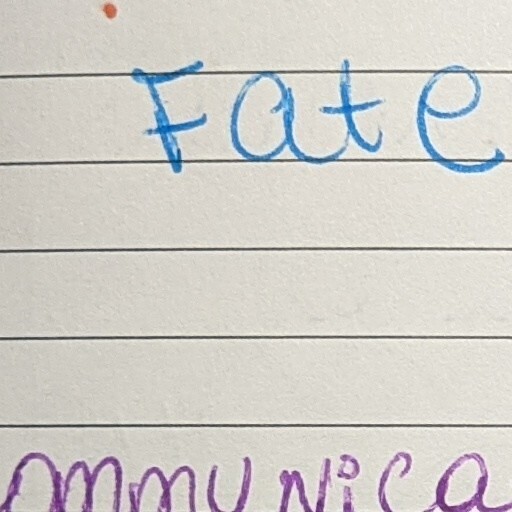 Fate
ommunica